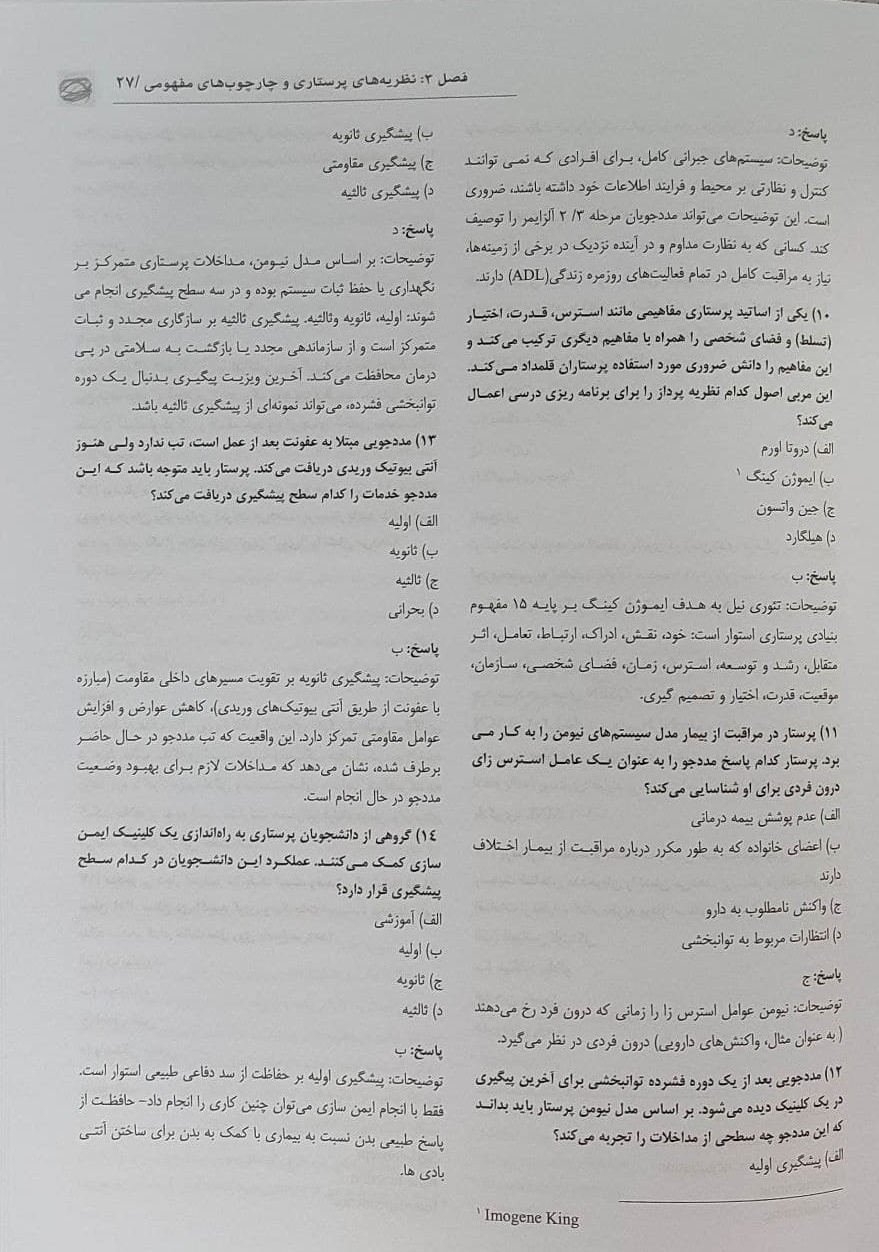 فصل ۲: نظریه‌های پرستاری و چارچوب‌های مفهومی /۲۷
پاسخ: د
توضیحات: سیستم‌های جبرانی کامل، برای افرادی که نمی توانند
کنترل و نظارتی بر محیط و فرایند اطلاعات خود داشته باشند، ضروری
است. این توضیحات می‌تواند مددجویان مرحله ۳/ ۲ آلزایمر را توصیف
کند. کسانی که به نظارت مداوم و در آینده نزدیک در برخی از زمینه‌ها،
نیاز به مراقبت کامل در تمام فعالیت‌های روزمره زندگی(ADL) دارند.
۱۰) یکی از اساتید پرستاری مفاهیمی مانند استرس، قدرت، اختیار
(تسلط) و فضای شخصی را همراه با مفاهیم دیگری ترکیب می‌کند و
این مفاهیم را دانش ضروری مورد استفاده پرستاران قلمداد می‌کند.
این مربی اصول کدام نظریه پرداز را برای برنامه ریزی درسی اعمال
می‌کند؟
الف) دروتا اورم
ب) ایموژن کینگ ۱
ج) جین واتسون
د) هیلگارد
پاسخ: ب
توضیحات: تئوری نیل به هدف ایموژن کینگ بر پایه ۱۵ مفهوم
بنیادی پرستاری استوار است: خود، نقش، ادراک، ارتباط، تعامل، اثر
متقابل، رشد و توسعه، استرس، زمان، فضای شخصی، سازمان،
موقعیت، قدرت، اختیار و تصمیم گیری.
۱۱) پرستار در مراقبت از بیمار مدل سیستم‌های نیومن را به کار می
برد. پرستار کدام پاسخ مددجو را به عنوان یک عامل استرس زای
درون فردی برای او شناسایی می‌کند؟
الف) عدم پوشش بیمه درمانی
ب) اعضای خانواده که به طور مکرر درباره مراقبت از بیمار اختلاف
دارند
ج) واکنش نامطلوب به دارو
د) انتظارات مربوط به توانبخشی
پاسخ: ج
توضیحات: نیومن عوامل استرس زا را زمانی که درون فرد رخ می‌دهند
( به عنوان مثال، واکنش‌های دارویی) درون فردی در نظر می‌گیرد.
۱۲) مددجویی بعد از یک دوره فشرده توانبخشی برای آخرین پیگیری
در یک کلینیک دیده می‌شود. بر اساس مدل نیومن پرستار باید بداند
که این مددجو چه سطحی از مداخلات را تجربه می‌کند؟
الف) پیشگیری اولیه
۱ Imogene King
ب) پیشگیری ثانویه
ج) پیشگیری مقاومتی
د) پیشگیری ثالثیه
پاسخ: د
توضیحات: بر اساس مدل نیومن، مداخلات پرستاری متمرکز بر
نگهداری یا حفظ ثبات سیستم بوده و در سه سطح پیشگیری انجام می
شوند: اولیه، ثانویه وثالثیه. پیشگیری ثالثیه بر سازگاری مجدد و ثبات
متمرکز است و از سازماندهی مجدد یا بازگشت به سلامتی در پی
درمان محافظت می‌کند. آخرین ویزیت پیگیری بدنبال یک دوره
توانبخشی فشرده، می‌تواند نمونه‌ای از پیشگیری ثالثیه باشد.
۱۳) مددجویی مبتلا به عفونت بعد از عمل است، تب ندارد ولی هنوز
آنتی بیوتیک وریدی دریافت می‌کند. پرستار باید متوجه باشد که این
مددجو خدمات را کدام سطح پیشگیری دریافت می‌کند؟
الف) اولیه
ب) ثانویه
ج) ثالثیه
د) بحرانی
پاسخ: ب
توضیحات: پیشگیری ثانویه بر تقویت مسیرهای داخلی مقاومت (مبارزه
با عفونت از طریق آنتی بیوتیک‌های وریدی)، کاهش عوارض و افزایش
عوامل مقاومتی تمرکز دارد. این واقعیت که تب مددجو در حال حاضر
برطرف شده، نشان می‌دهد که مداخلات لازم برای بهبود وضعیت
مددجو در حال انجام است.
۱٤) گروهی از دانشجویان پرستاری به راه‌اندازی یک کلینیک ایمن
سازی کمک می‌کنند. عملکرد این دانشجویان در کدام سطح
پیشگیری قرار دارد؟
الف) آموزشی
ب) اولیه
ج) ثانویه
د) ثالثیه
پاسخ: ب
توضیحات: پیشگیری اولیه بر حفاظت از سد دفاعی طبیعی استوار است.
فقط با انجام ایمن سازی می‌توان چنین کاری را انجام داد- حافظت از
پاسخ طبیعی بدن نسبت به بیماری با کمک به بدن برای ساختن آنتی
بادی ها.